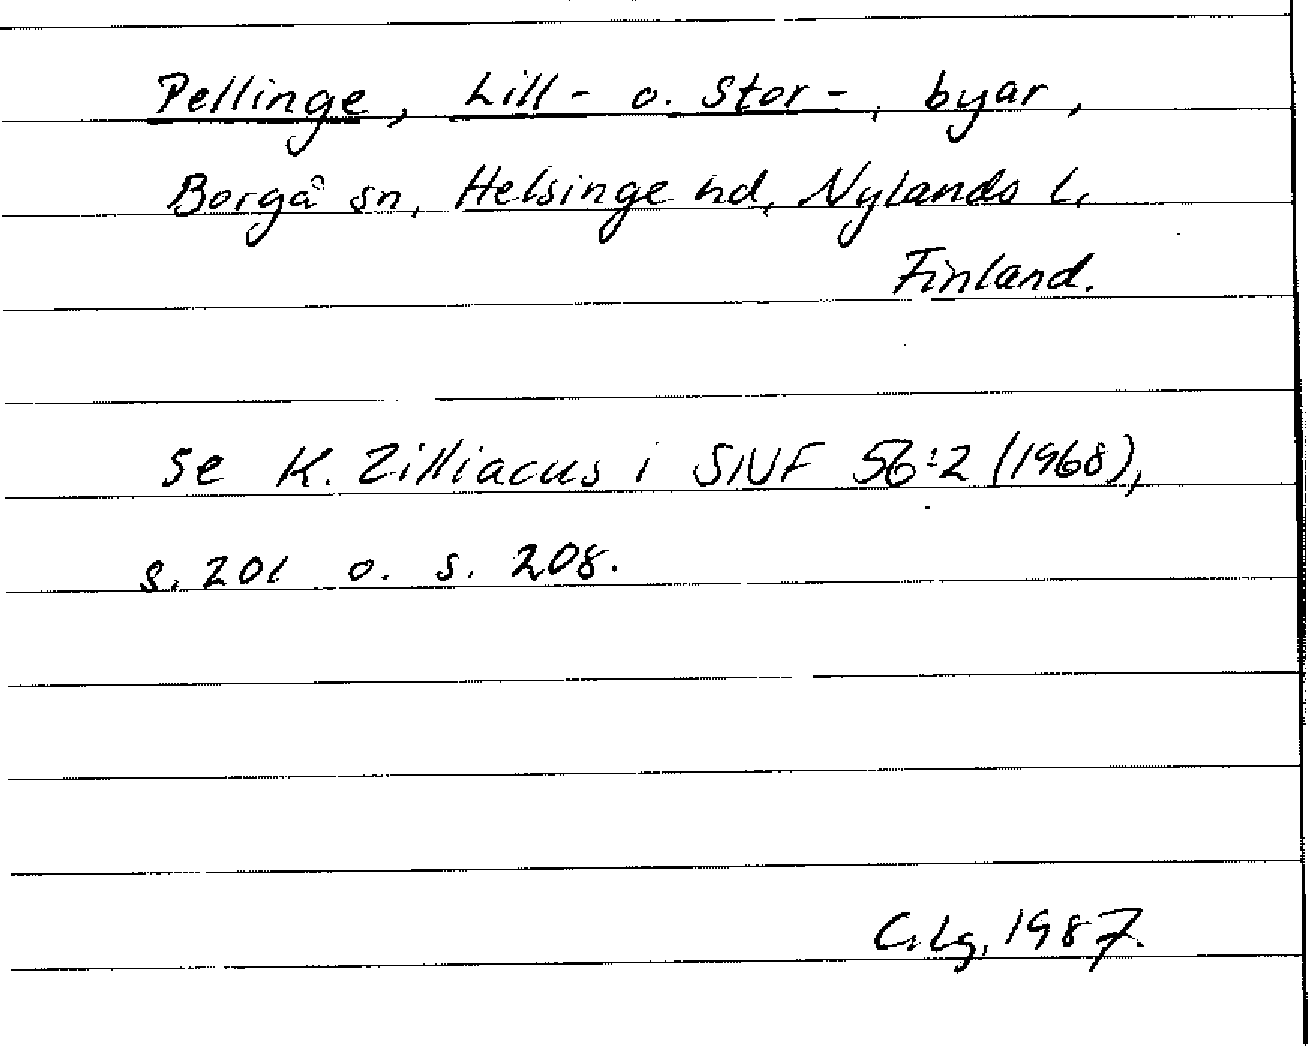 Pellinge, Lill- o. Stor-, byar,
Borgå sn, Helsinge hd, Nylands l.
Finland.
Se K. Zilliacus i SNF 56:2 (1968),
s. 201 o. s. 208.
C. Lg, 1987.